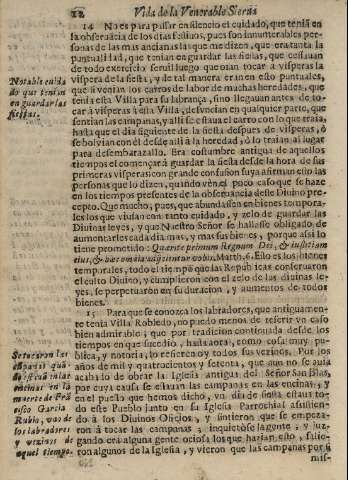 22 Vida de la Venerable Sierua
14 No es para passar en silencio el cuidado, que tenia en
la obseruācia de los dias festiuos, pues son innumerables per-
sonas de las mas ancianas las que me dizen, que era tanta la
puntualidad, que tenian en guardar las fiestas, que cessauan
de todo exercicio seruil luego que oian tocar a visperas la
vispera de la fiesta, y de tal manera eran en esto puntuales,
que si venian los carros de labor de muchas heredades, que
tenia esta Villa para su labrança, sino llegauan antes de to-
car à visperas à la Villa, desuncian en qualquier parte, que
sentian las campanas, y alli se estaua el carro con lo que traia,
hasta que el dia siguiente de la fiesta despues de visperas, ò
se bolvian con èl desde alli à la heredad, ò lo traian al lugar
para desembaraçallo. Era costumbre antigua de aquellos
tiempos el començar à guardar la fiesta desde la hora de sus
primeras visperas; con grande confusion suya afirman esto las
personas que lo dizen, quando vèn el poco caso que se haze
en los tiempos presentes de la obseruancia deste Diuino pre-
cepto. Que mucho, pues, que abundassen en bienes tempora-
les los que viuian con tanto cuidado, y zelo de guardar las
Diuinas leyes, y que Nuestro Señor se hallasse obligado de
aumentarles cada dia mas, y mas sus bienes, porque assi lo
tiene prometido: Quærite primum Regnum Dei, & iustitiam
eius, & hæc omnia adijcientur vobis. Matth. 6. Esto es los bienes
temporales, todo el tiempo que las Republicas conseruaron
el culto Diuino, y cumplieron con el zelo de las diuinas le-
yes, se perpetuaron en su duracion, y aumentos de todos
bienes.
Notable cuida
do que tenian
en guardar las
fiestas.
15 Para que se conozca los labradores, que antiguamen-
te tenia Villa Robledo, no puedo menos de referir vn caso
bien admirable; que por tradicion continuada desde los
tiempos en que sucediò, hasta aora, como cosa muy pu-
blica, y notoria, lo refieren oy todos sus vezinos. Por los
años de mil y quatrocientos y setenta, que aun no se auia
acabado de obrar la Iglesia antigua del Señor San Blas,
por cuya causa se estauan las campanas en las encinas, y
en el puesto que hemos dicho, vn dia de fiesta estaua to-
do este Pueblo junto en su Iglesia Parrochial assistien-
do à los Diuinos Oficios, y sintieron que se empeza-
ron à tocar las campanas; inquietòse la gente, y juz-
gando era alguna gente ociosa los que hazian esto, salie-
ron algunos de la Iglesia, y vieron que las campanas por si
mis-
Se tocaron las
campanas que
estauan en las
encinas en la
muerte de Frā
cisco Garcia
Rubio, vno de
los labradores
y vezinos de
aquel tiempo.